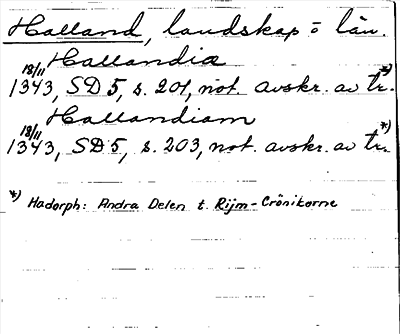 Halland, landskap o län.
Hallandia
18/11 1343, SD 5, s. 201, not. avskr. av tr. *)
Hallandiam
18/11 1343, SD 5, s. 203, not. avskr. av tr. *)
*) Hadorph: Andra Delen t. Rijm-Crönikorne